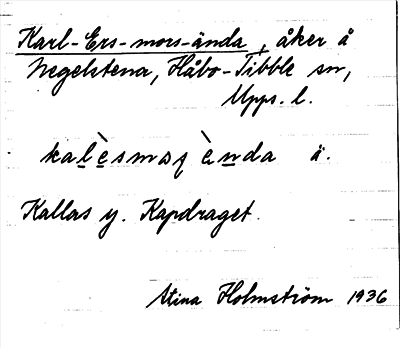 Karl-Ers-mors-ända, åker å
Negelstena, Håbo-Tibble sn,
Upps. l.
kalèsmoʂ ènda ä.
Kallas y. Kapdraget.
Stina Holmström 1936